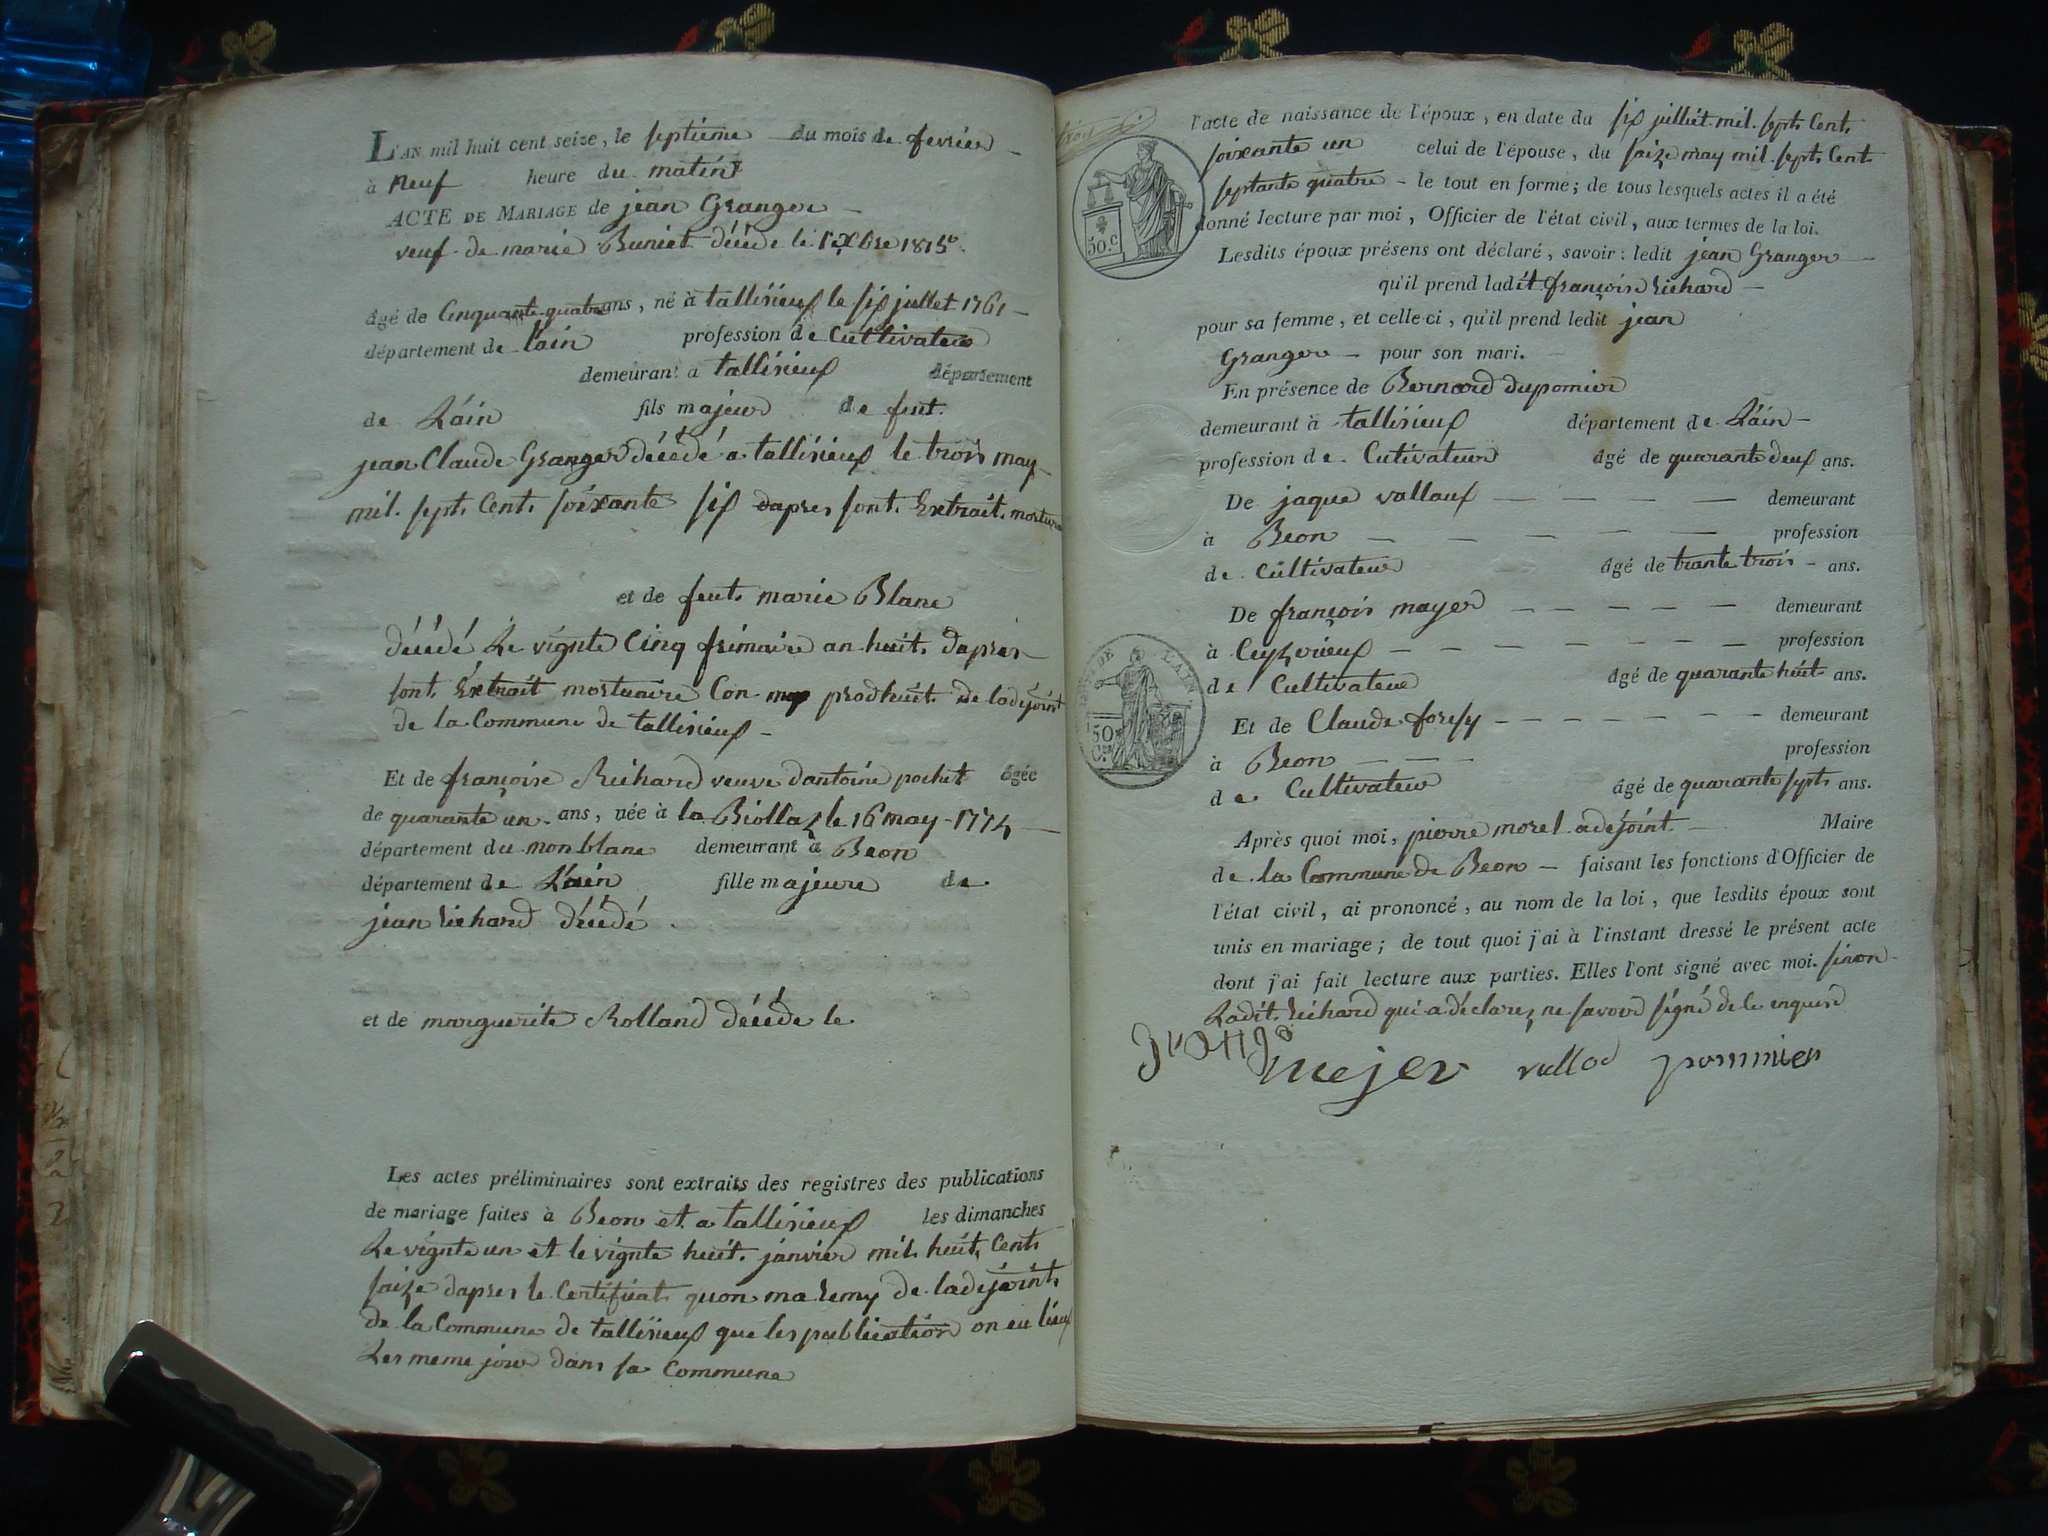 L'AN mil huit cent seize, le septieme du mois de fevrier
à neuf heure du matint
ACTE DE MARIAGE de jean Granger
veuf de marie Buniet décéde le 1er Xbre 1815
âgé de Cinquante quatre ans, né à tallisieux le six juillet 1761
département de l'ain profession de Cultivateur
demeurant à tallisieux département
de L'áin fils majeur de feut
jean Claude Granger décédé a tallisieux le trois may
mil sept Cent soixante six dapres sont Extrait morture
et de feut marie Blanc
décédé Le vignte Cinq frimaire an huit dapres
sont Extrait mortuaire Con prodhuit de ladejoint
de la Commune de tallisieux
Et de françoise Richard veuve dantoine pochet âgée
de quarante un ans, née à la Biollaz le 16 may 1774
département du monblanc demeurant à Beon
département de L'ain fille majeure de
jean Richard décédé
et de marguerite Rolland décéde le
Les actes préliminaires sont extraits des registres des publications
de mariage faites à Beon et a tallisieux les dimanches
Le vignte un et le vignte huit janvier mil huit Cent
saize dapres le Certificat quon ma Remy de ladejoint
de la Commune de tallisieux que les publication on eu lieux
Les meme jour dans sa Commune
l'acte de naissance de l'époux, en date du six julliet mil sept Cent
soixante un celui de l'épouse, du saize may mil sept Cent
septante quatre le tout en forme; de tous lesquels actes il a été
donné lecture par moi, Officier de l'état civil, aux termes de la loi.
50.c
Lesdits époux présens ont déclaré, savoir: ledit jean Granger
qu'il prend ladit françoise Richard
pour sa femme, et celle-ci, qu'il prend ledit jean
Granger pour son mari.
En présence de Bernard dupomier
demeurant à tallisieux département de L'áin
profession de Cutivateur âgé de quarante deux ans.
De jaque vallaux demeurant
à Beon profession
de Cultivateur âgé de trante trois ans.
De françois mayer demeurant
à Ceyzerieux profession
DE L'AIN
de Cultivateur âgé de quarante huit ans.
Et de Claude foresy demeurant
50
à Beon profession
de Cultivateur âgé de quarante sept ans.
Après quoi moi, pierre morel adejoint Maire
de la Commune de Beon faisant les fonctions d'Officier de
l'état civil, ai prononcé, au nom de la loi, que lesdits époux sont
unis en mariage; de tout quoi j'ai à l'instant dressé le présent acte
dont j'ai fait lecture aux parties. Elles l'ont signé avec moi. sinon
Ladit Richard qui a déclarez ne savoir signé de le enquere
mejer vallod pommier